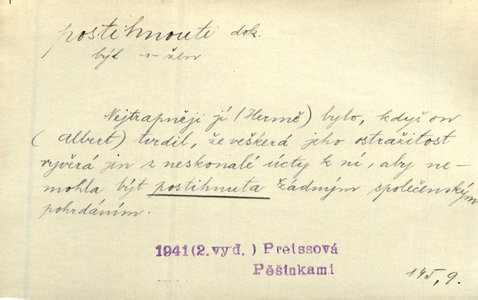 postihnouti dok.
být -"- žen
Nejtrapněji jí (Hermě) bylo, když on
(Albert) tvrdil, že veškerá jeho ostražitost
vyvěrá jen z neskonalé úcty k ní, aby ne-
mohla být postihnuta žádným společenským
pohrdáním.
1941(2.vyd.) Preissová
Pěšinkami
145, 9.